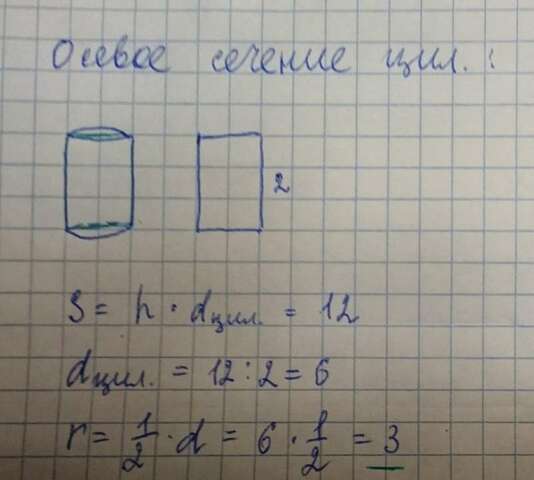 Осевое сечение цил. :
2
S = h · dцил. = 12
dцил. = 12 : 2 = 6
r = 1/2 · d = 6 · 1/2 = 3